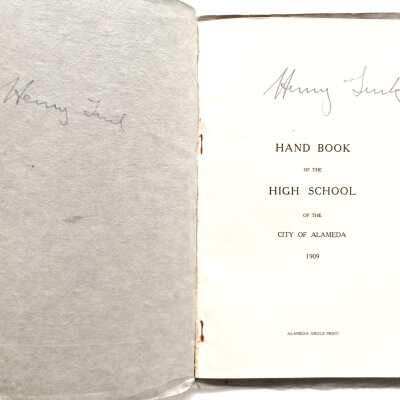 Henry
Henry
HAND BOOK
OF THE
HIGH SCHOOL
OF THE
CITY OF ALAMEDA
1909
ALAMEDA ARGUS PRINT.